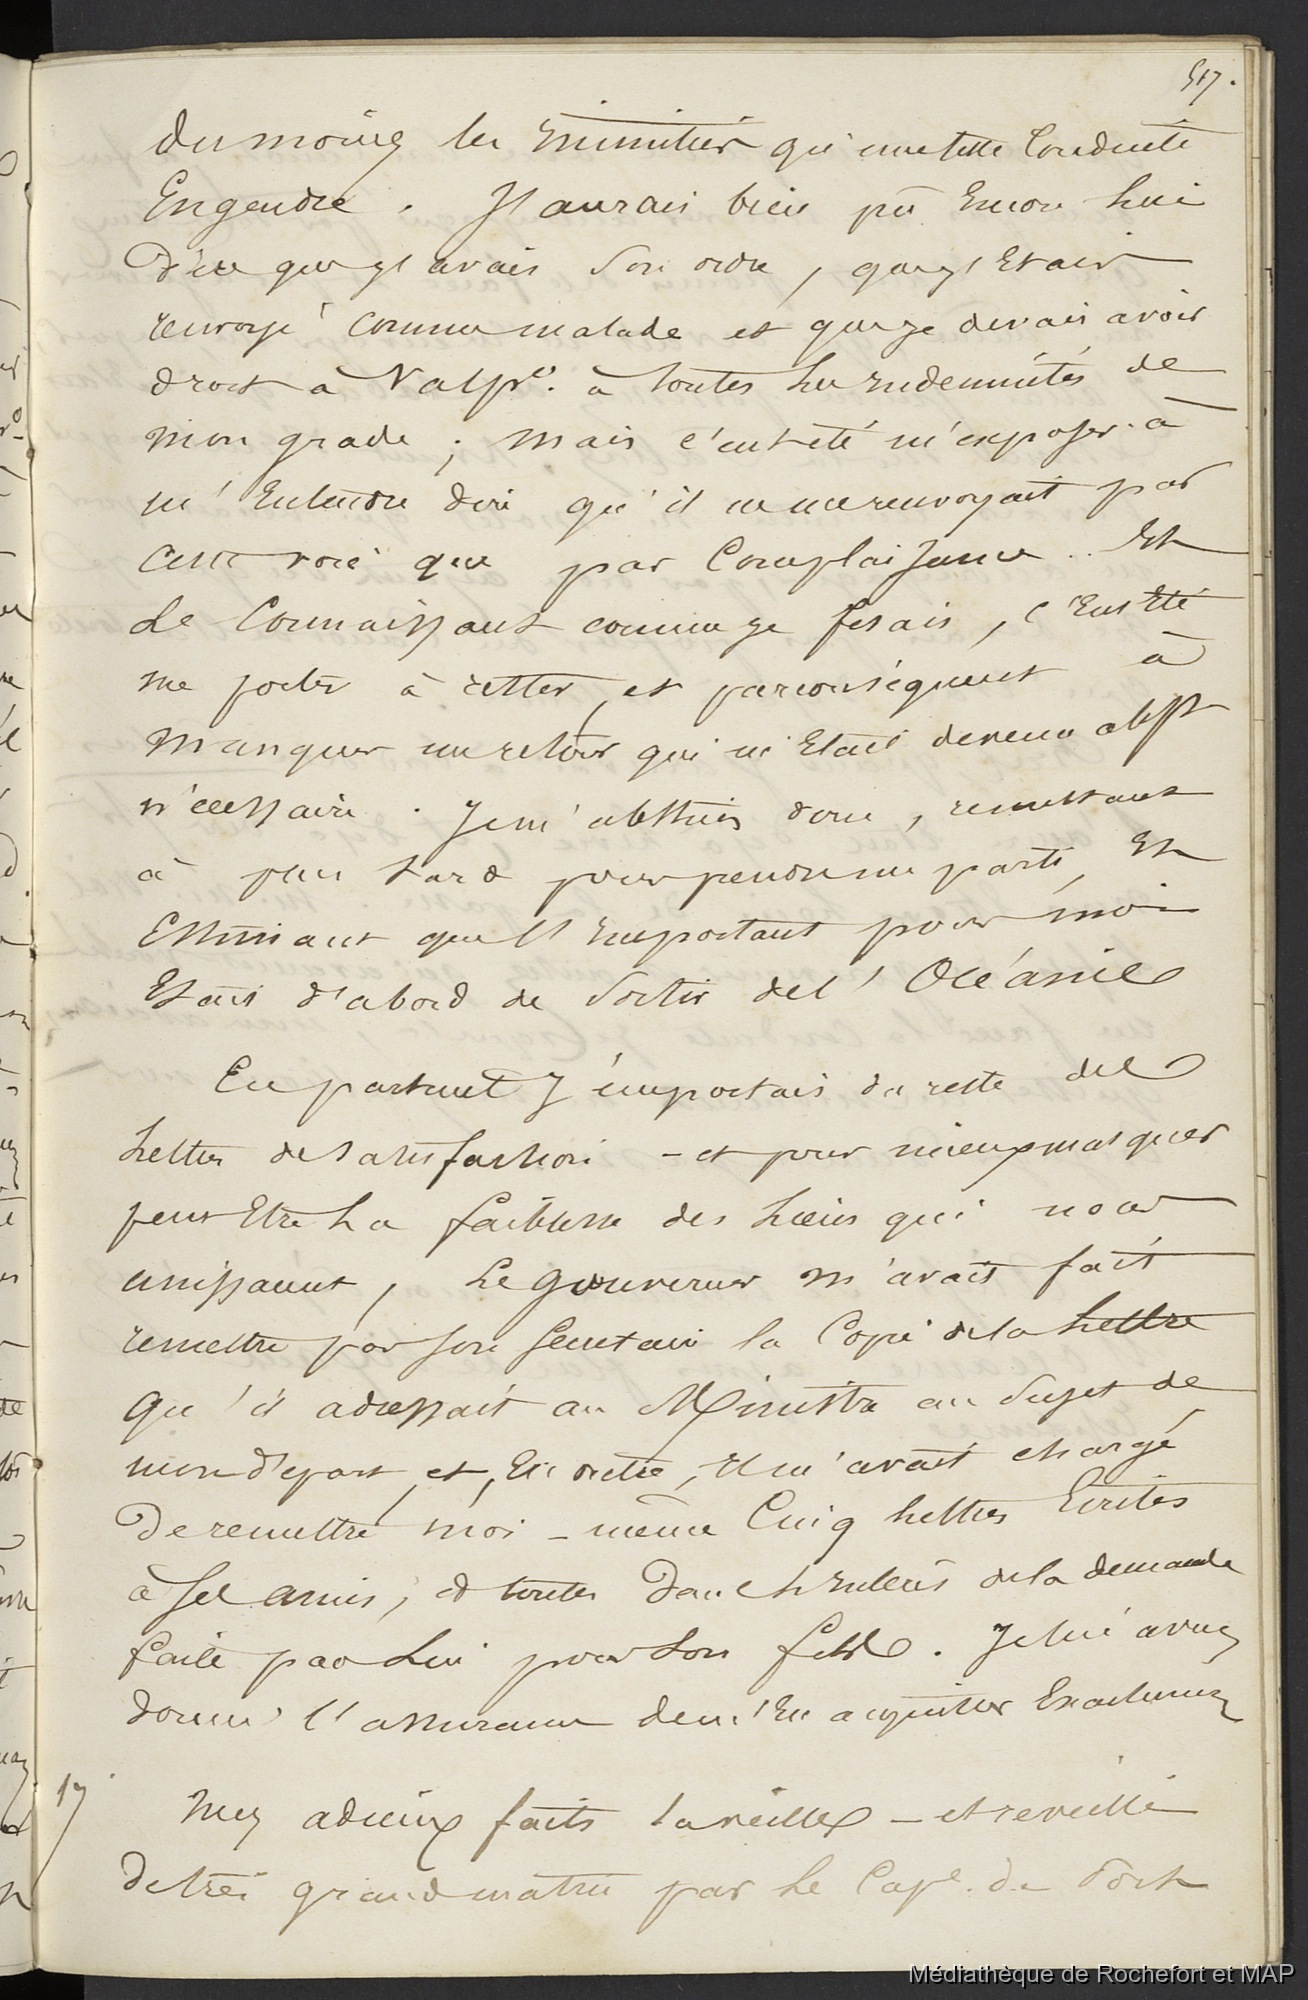 517.
du moins les inimitiés qu'une telle Conduite
Engendre. J'aurais bien pû Encor lui
dire que j'avais son ordre, que j'Etais
renvoyé comme malade et que je devais avoir
droit à Valp.° à toutes les indemnités de
mon grade ; mais c'eut été m'exposer à
m'Entendre dire qu'il ne me renvoyait par
cette voie que par Complaisance .. Et
le Connaissant comme je fesais, c'Eut Eté
me porter à rester, et parconséquent à
manquer un retour qui m'Etait devenu abst
nécessaire. Je m'abstins donc, remettant
à plus tard pour prendre un parti, Et
Estimant que l'Important pour moi
Etait d'abord de Sortir de l'Océanie
En partant J'emportais du reste des
Lettres de Satisfaction - et pour mieux masquer
peut Etre La faiblesse des Liens qui nous
unissaient, Le gouverneur m'avait fait
remettre par son Secrétaire la Copie de la Lettre
qu'il adressait au Ministre au Sujet de
mon départ et, En outre, Il m'avait chargé
De remettre moi-même Cinq Lettres Ecrites
à Ses amis, et toutes Dans l'Intérêt de la demande
faite par Lui pour Son fils. Je lui avais
donné l'assurance de m'En acquitter Exactement
17
Mes adieux faits la veille - et reveillé
De très grand matin par le Cap.e du Port
Médiathèque de Rochefort et MAP